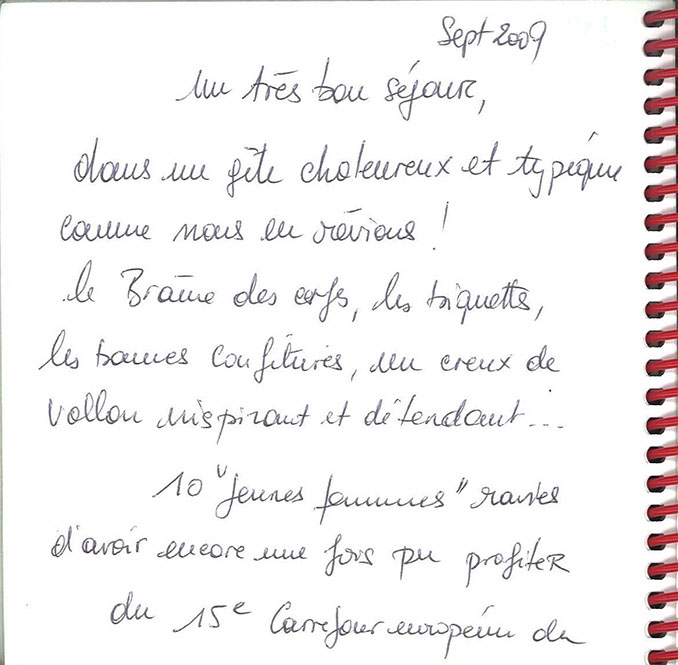 Sept 2009
Un très bon séjour,
dans un gîte chaleureux et typique
comme nous en rêvions !
le Brâme des cerfs, les biquettes,
les bonnes confitures, un creux de
vallon inspirant et détendant...
10 "jeunes femmes" ravies
d'avoir encore une fois pu profiter
du 15e Carrefour européen du